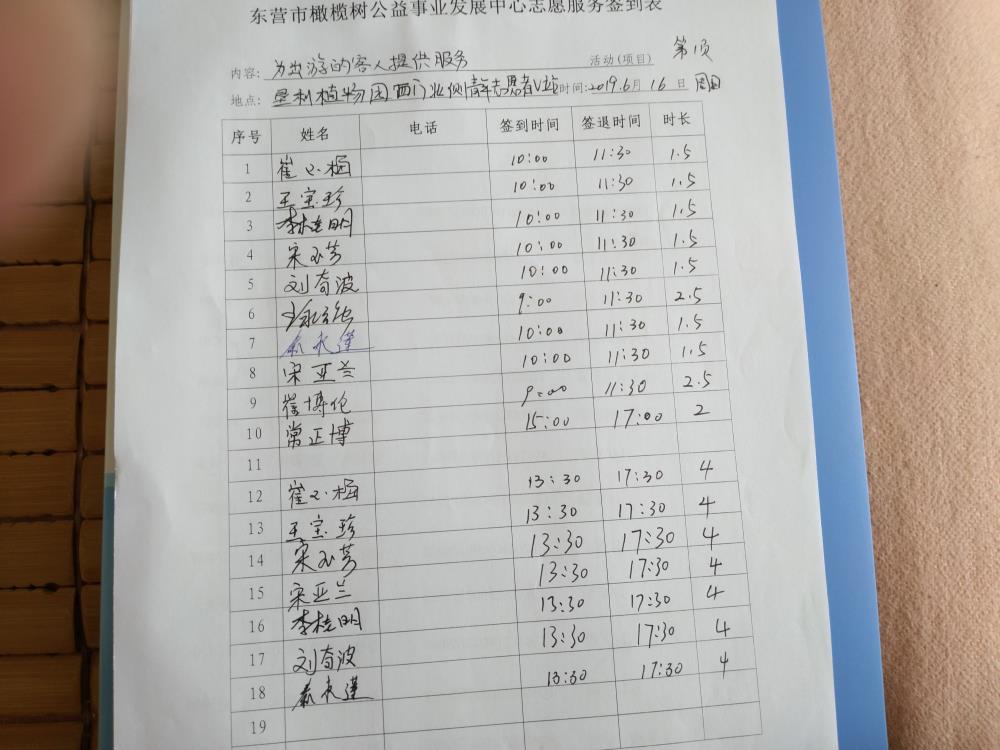 东营市橄榄树公益事业发展中心志愿服务签到表
第1页
内容: 为出游的客人提供服务 活动(项目)
地点: 垦利植物园西门北侧青年志愿者V站 时间:2019.6月16日 周日
序号 姓名 电话 签到时间 签退时间 时长
1 崔 10:00 11:30 1.5
2 王宝珍 10:00 11:30 1.5
3 李桂明 10:00 11:30 1.5
4 宋玉芳 10:00 11:30 1.5
5 刘奇波 10:00 11:30 1.5
6 9:00 11:30 2.5
7 10:00 11:30 1.5
8 宋亚兰 10:00 11:30 1.5
9 崔博伦 9:00 11:30 2.5
10 常正博 15:00 17:00 2
11
12 崔 13:30 17:30 4
13 王宝珍 13:30 17:30 4
14 宋玉芳 13:30 17:30 4
15 宋亚兰 13:30 17:30 4
16 李桂明 13:30 17:30 4
17 刘奇波 13:30 17:30 4
18 13:30 17:30 4
19